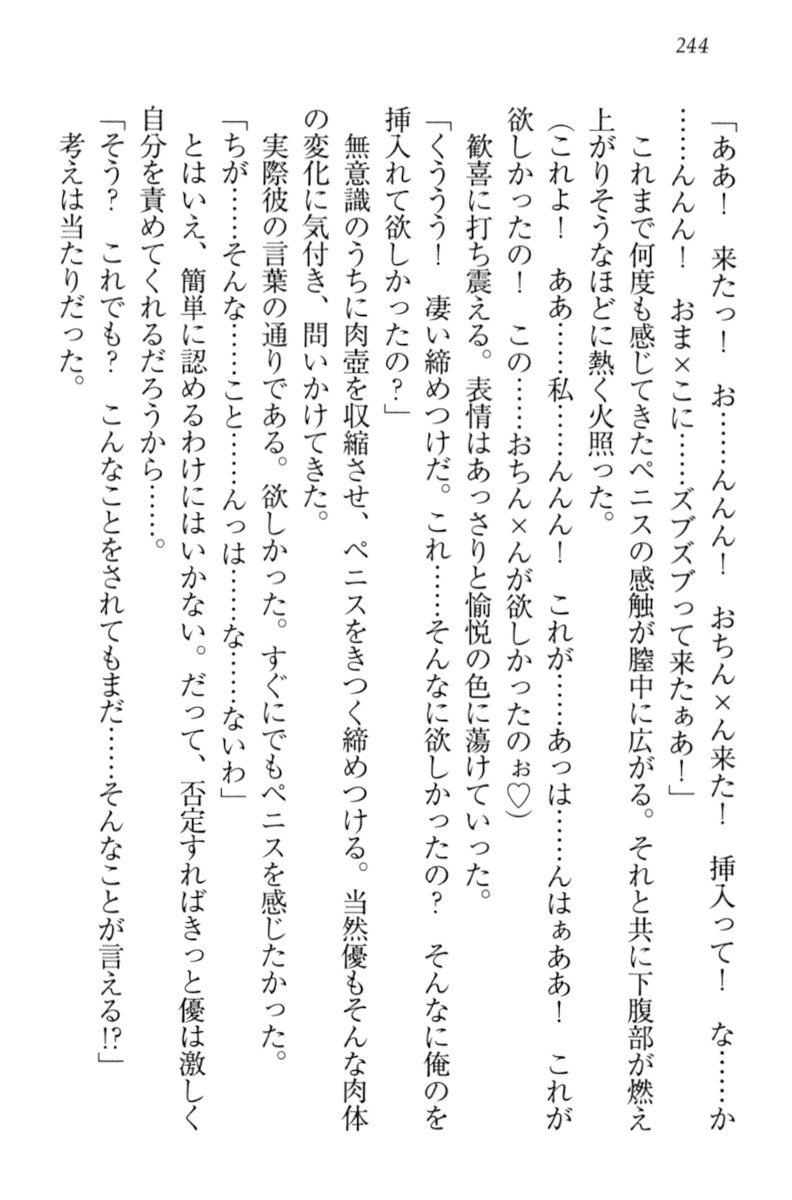 244
「ああ！　来たっ！　お……んんん！　おちん×ん来た！　挿入って！　な……か
……んんん！　おま×こに……ズブズブって来たぁあ！」
これまで何度も感じてきたペニスの感触が膣中に広がる。それと共に下腹部が燃え
上がりそうなほどに熱く火照った。
（これよ！　ああ……私……んんん！　これが……あっは……んはぁああ！　これが
欲しかったの！　この……おちん×んが欲しかったのぉ♡）
歓喜に打ち震える。表情はあっさりと愉悦の色に蕩けていった。
「くううう！　凄い締めつけだ。これ……そんなに欲しかったの？　そんなに俺のを
挿入れて欲しかったの？」
無意識のうちに肉壺を収縮させ、ペニスをきつく締めつける。当然優もそんな肉体
の変化に気付き、問いかけてきた。
実際彼の言葉の通りである。欲しかった。すぐにでもペニスを感じたかった。
「ちが……そんな……こと……んっは……な……ないわ」
とはいえ、簡単に認めるわけにはいかない。だって、否定すればきっと優は激しく
自分を責めてくれるだろうから……。
「そう？　これでも？　こんなことをされてもまだ……そんなことが言える!?」
考えは当たりだった。